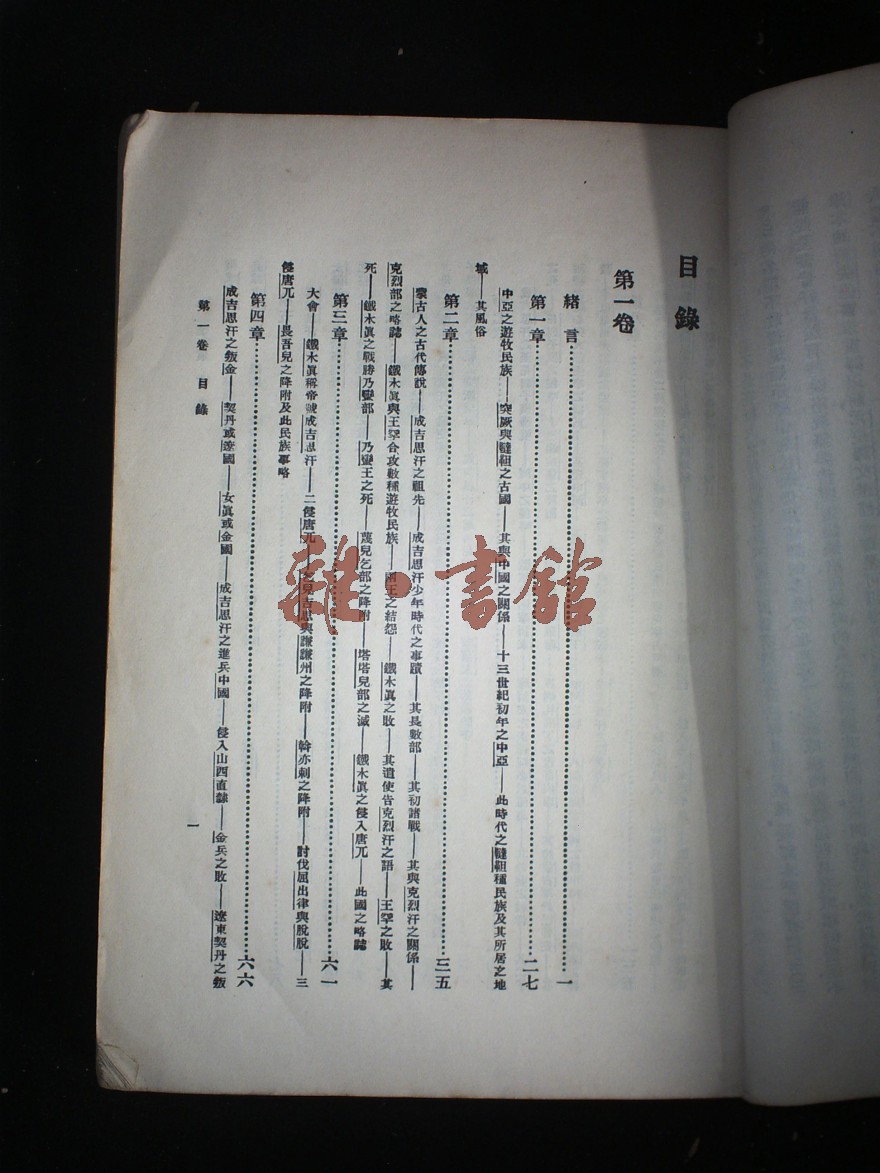 目錄
第一卷
緒言……一
第一章……二七
中亞之遊牧民族——突厥與韃靼之古國——其與中國之關係——十三世紀初年之中亞——此時代之韃靼種民族及其所居之地
域——其風俗
第二章……三五
蒙古人之古代傳說——成吉思汗之祖先——成吉思汗少年時代之事蹟——其長數部——其初諸戰——其與克烈汗之關係——
克烈部之略誌——鐵木眞與王罕合攻數種遊牧民族——兩王之結怨——鐵木眞之敗——其遣使告克烈汗之語——王罕之敗——其
死——鐵木眞之戰勝乃蠻部——乃蠻王之死——蔑兒乞部之降附——塔塔兒部之滅——鐵木眞之侵入唐兀——此國之略誌
第三章……六一
大會——鐵木眞稱帝號成吉思汗——二侵唐兀——乞兒吉思與謙謙州之降附——斡亦剌之降附——討伐屈出律與脫脫——三
侵唐兀——畏吾兒之降附及此民族事略
第四章……六六
成吉思汗之叛金——契丹或遼國——女眞或金國——成吉思汗之進兵中國——侵入山西直隸——金兵之敗——遼東契丹之叛
第一卷 目錄
一
雜·書館